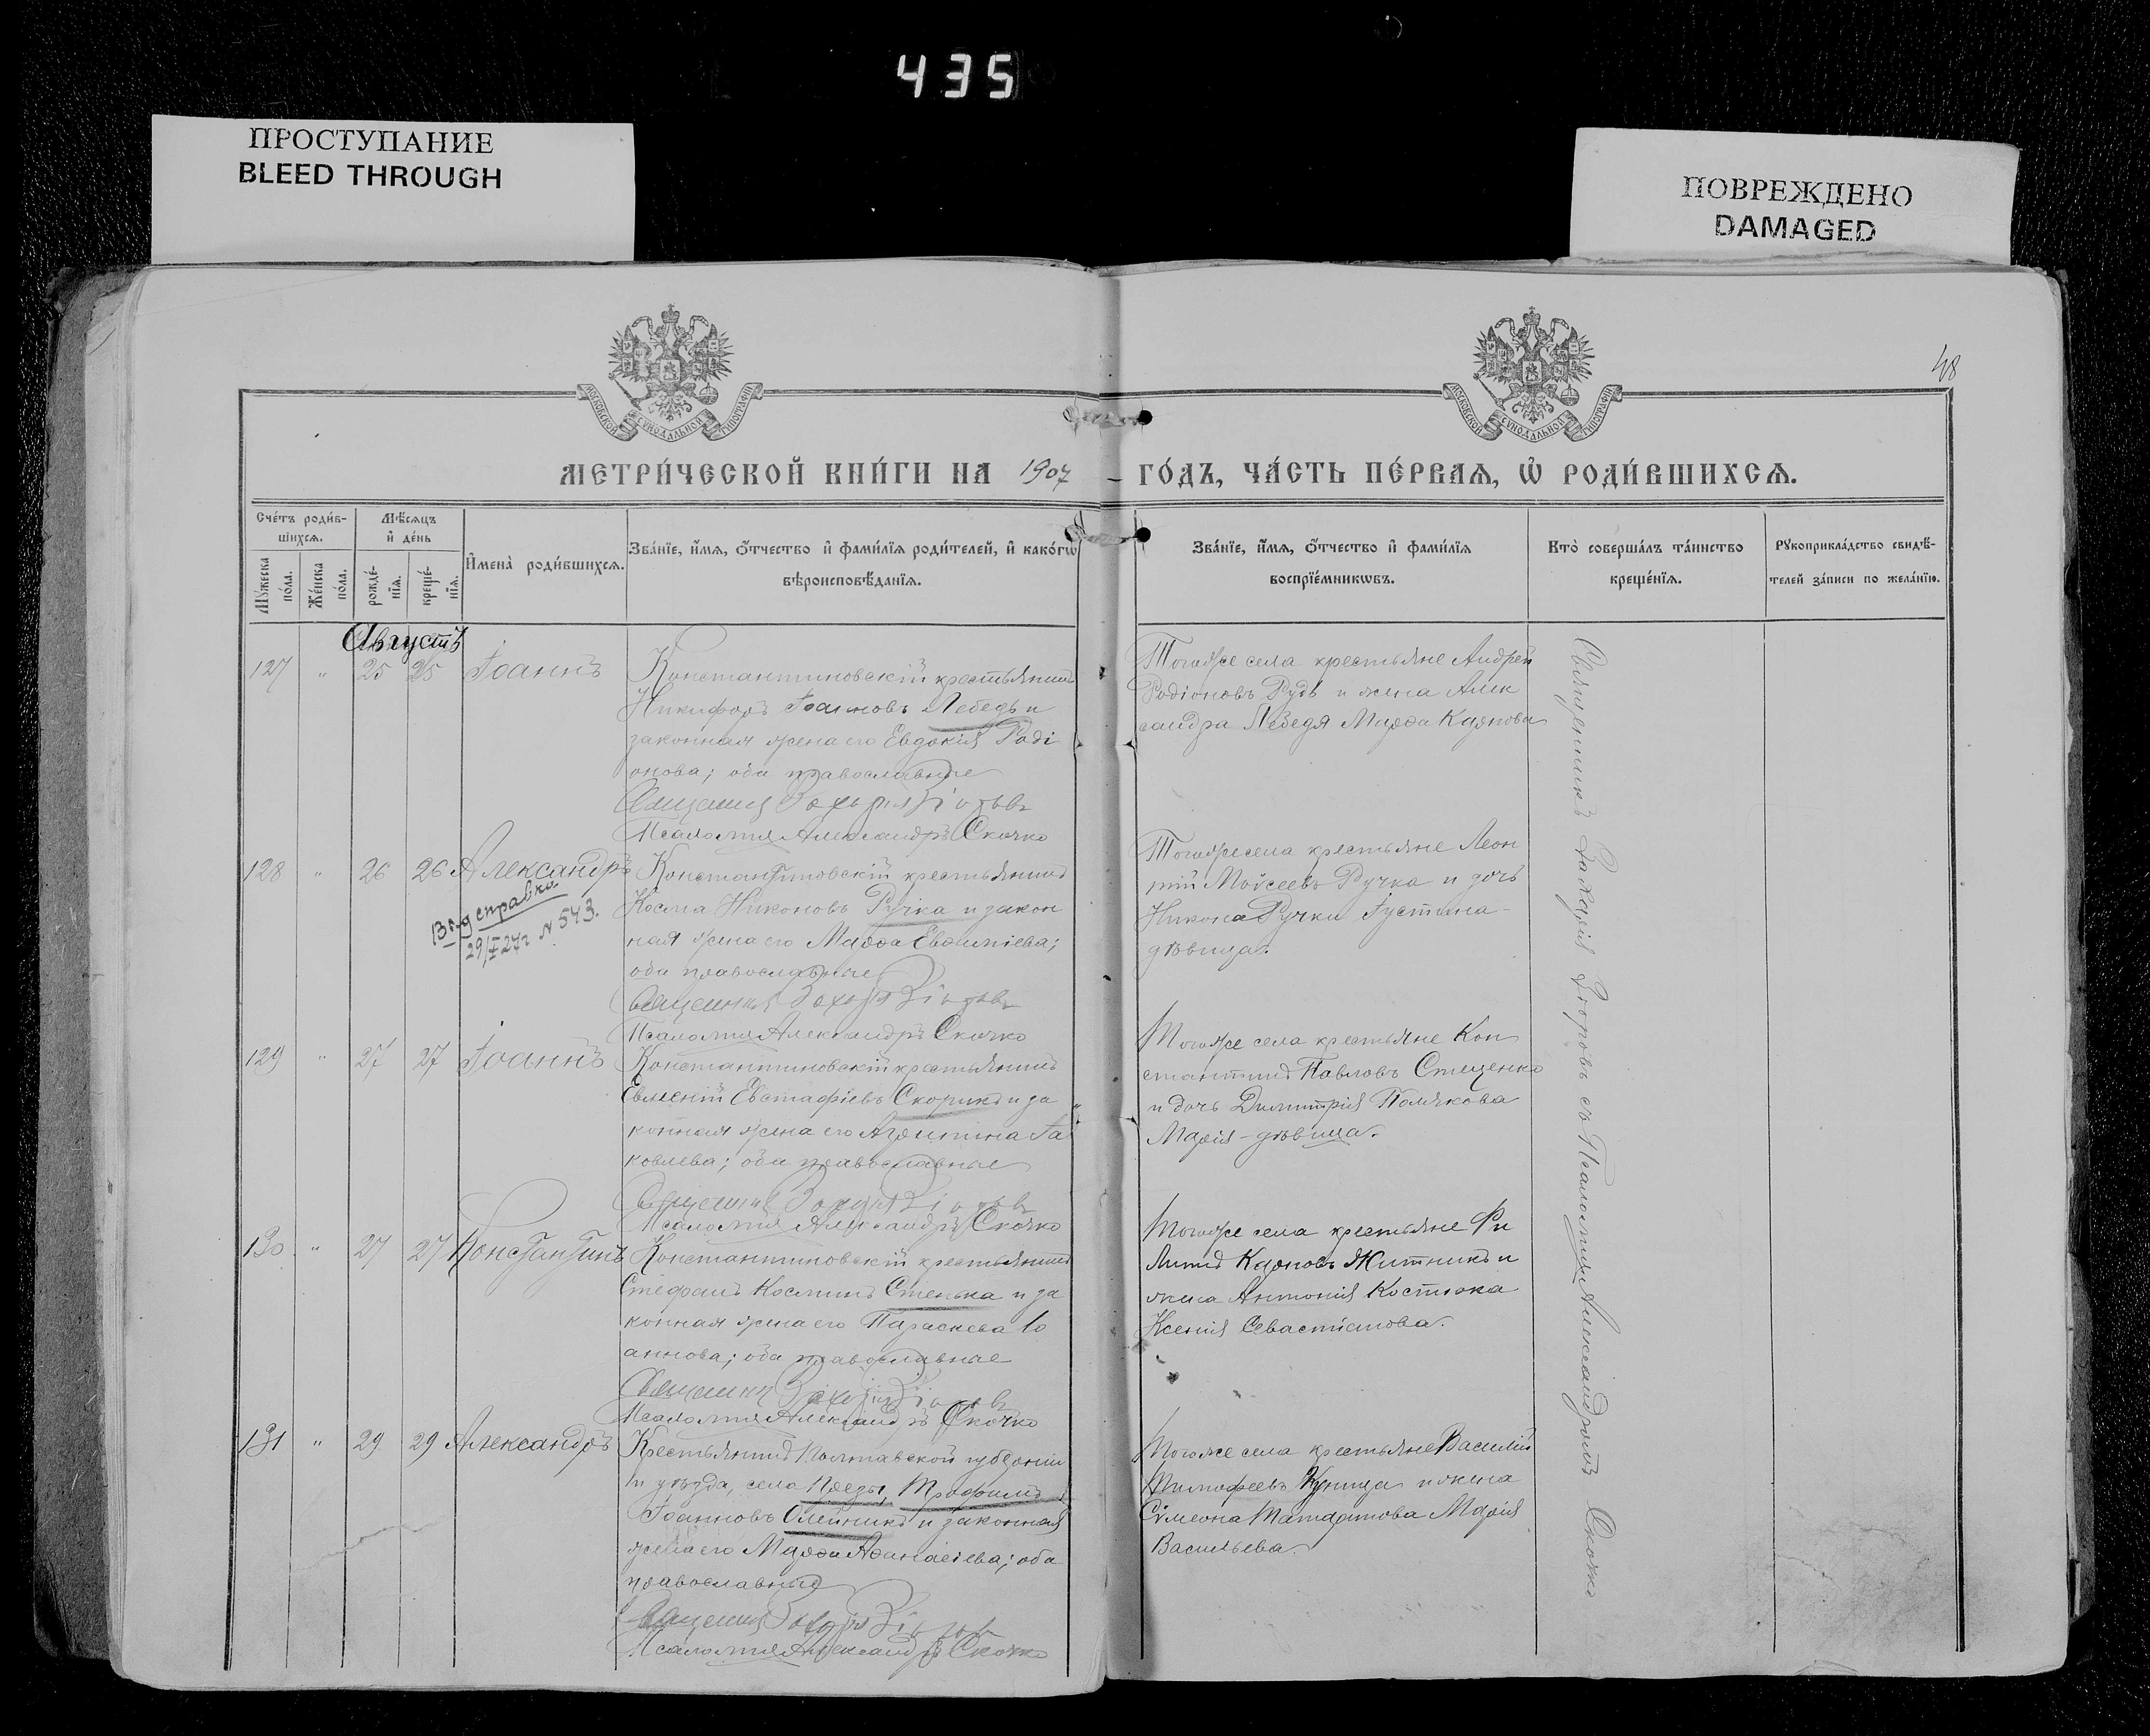 435
ПРОСТУПАНИЕ
BLEED THROUGH
ПОВРЕЖДЕНО
DAMAGED
48
МОСКОВСКОЙ СѴНОДАЛЬНОЙ ТИПОГРАФІИ
МОСКОВСКОЙ СѴНОДАЛЬНОЙ ТИПОГРАФІИ
МЕТРИ́ЧЕСКОЙ КНИ́ГИ НА 1907 ГО́ДЪ, ЧА́СТЬ ПЕ́РВАЯ, Ѽ РОДИ́ВШИХСЯ.
Сче́тъ роди́в-
шихся.
Му́жеска по́ла.
Же́нска по́ла.
Мѣ́сяцъ
и҆ де́нь
рожде́-
нїя.
креще́-
нїя.
И҆мена̀ роди́вшихся.
Зва́нїе, и҆́мя, ѻ҆́тчество и҆ фами́лїя роди́телей, и҆ како́гѡ
вѣроисповѣ́данїя.
Зва́нїе, и҆́мя, ѻ҆́тчество и҆ фами́лїя
воспрїе́мникѡвъ.
Кто̀ соверша́лъ та́инство
креще́нїя.
Рукоприкла́дство свидѣ́-
телей за́писи по жела́нїю.
Августъ
127 " 25 25 Іоаннъ
Константиновскій крестьянинъ
Никифоръ Іоанновъ Лебедь и
законная жена его Евдокія Роді
онова; оба православные
Священникъ Захарія
Псаломщикъ Александръ Скочко
Тогоже села крестьяне Андрей
Родіоновъ Рудь и жена Алек
сандра Лебедя Марѳа Карпова
128 " 26 26 Александръ
Выд справка
29/I 27г № 543.
Константиновскій крестьянинъ
Косма Никоновъ Ручка и закон
ная жена его Марѳа Евѳиміева;
оба православные
Священникъ Захарія
Псаломщикъ Александръ Скочко
Тогоже села крестьяне Леон
тій Моисеевъ Ручка и дочь
Никона Ручки Іустина-
дѣвица.
129 " 27 27 Іоаннъ
Константиновскій крестьянинъ
Евменій Евстафіевъ Скорикъ и за
конная жена его Агриппина Іа
ковлева; оба православные
Священникъ Захарія
Псаломщикъ Александръ Скочко
Тогоже села крестьяне Кон
стантинъ Павловъ Стеценко
и дочь Димитрія Полякова
Марія-дѣвица.
130 " 27 27 Константинъ
Константиновскій крестьянинъ
Стефанъ Косминъ Стенька и за
конная жена его Параскева Іо
аннова; оба православные
Священникъ Захарія
Псаломщикъ Александръ Скочко
Тогоже села крестьяне Фи
липпъ Карповъ Житникъ и
жена Антонія Костюка
Ксенія Севастіанова.
131 " 29 29 Александръ
Крестьянинъ Полтавской губерніи
и уѣзда, села Трофимъ
Іоанновъ Олейникъ и законная
жена его Марѳа Аѳанасіева; оба
православные
Священникъ Захарія
Псаломщикъ Александръ Скочко
Тогоже села крестьяне Василій
Тимофеевъ Куница и жена
Сѵмеона Марія
Васильева.
Священникъ Захарія съ Псаломщикомъ Александромъ Скочко